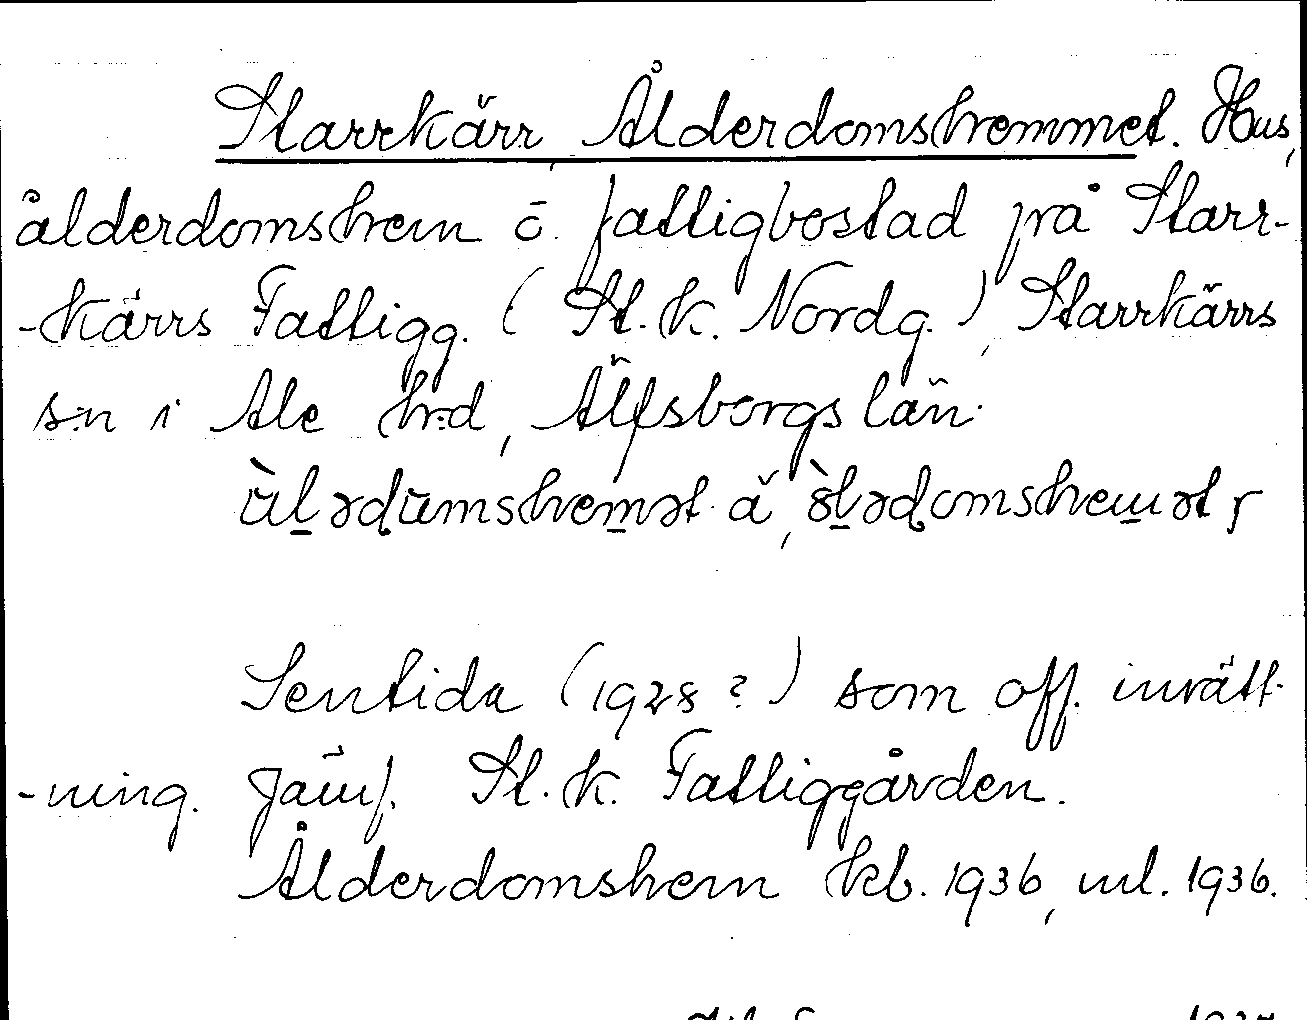 Starrkärr, Ålderdomshemmet. Hus,
ålderdomshem o. fattigbostad på Starr-
-kärrs Fattigg. (St.k. Nordg.), Starrkärrs
sn i Ale hrd, Älfsborgs län.
ùlədumshemət å, òlədomshemət
Sentida (1928?) som off. inrätt-
-ning. Jämf. St.k. Fattiggården.
Ålderdomshem kb. 1936, ml. 1936.